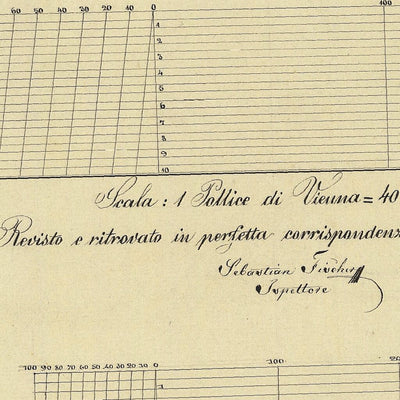 60 50 40 30 20 10 0 100
1
2
3
4
5
6
7
8
9
10
Scala : 1 Pollice di Vienna = 40
Revisto e ritrovato in perfetta corrispondenz
Sebastian
Ispettore
100 90 80 70 60 50 40 30 20 10 0 100 20
1
2